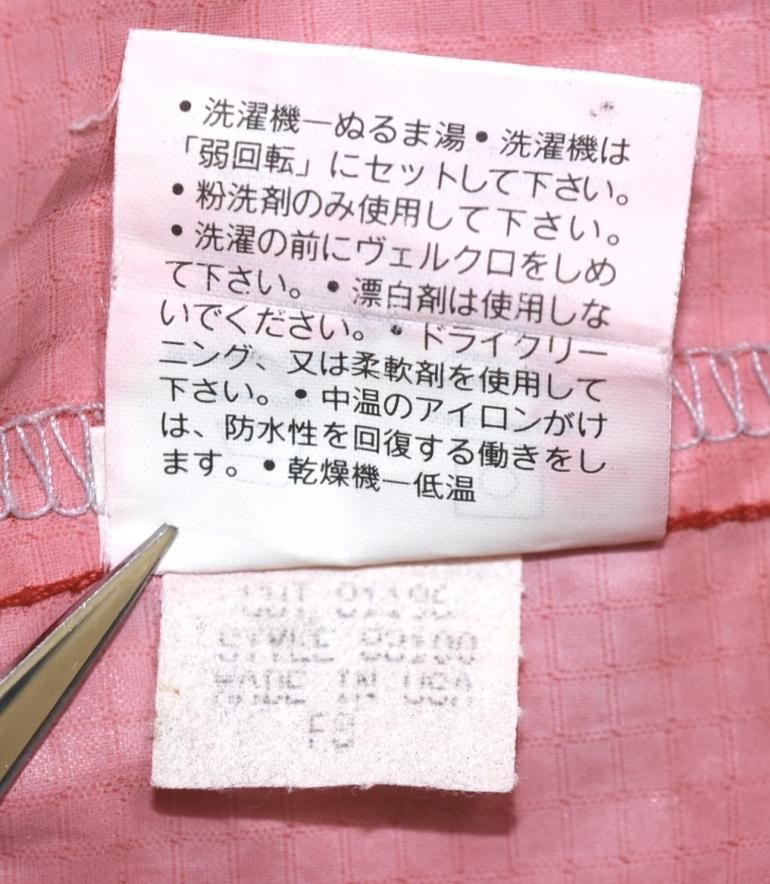 • 洗濯機―ぬるま湯 • 洗濯機は
「弱回転」にセットして下さい。
• 粉洗剤のみ使用して下さい。
• 洗濯の前にヴェルクロをしめ
て下さい。 • 漂白剤は使用しな
いでください。 • ドライクリー
ニング、又は柔軟剤を使用して
下さい。 • 中温のアイロンがけ
は、防水性を回復する働きをし
ます。 • 乾燥機―低温
CUT
STYLE
MADE IN USA